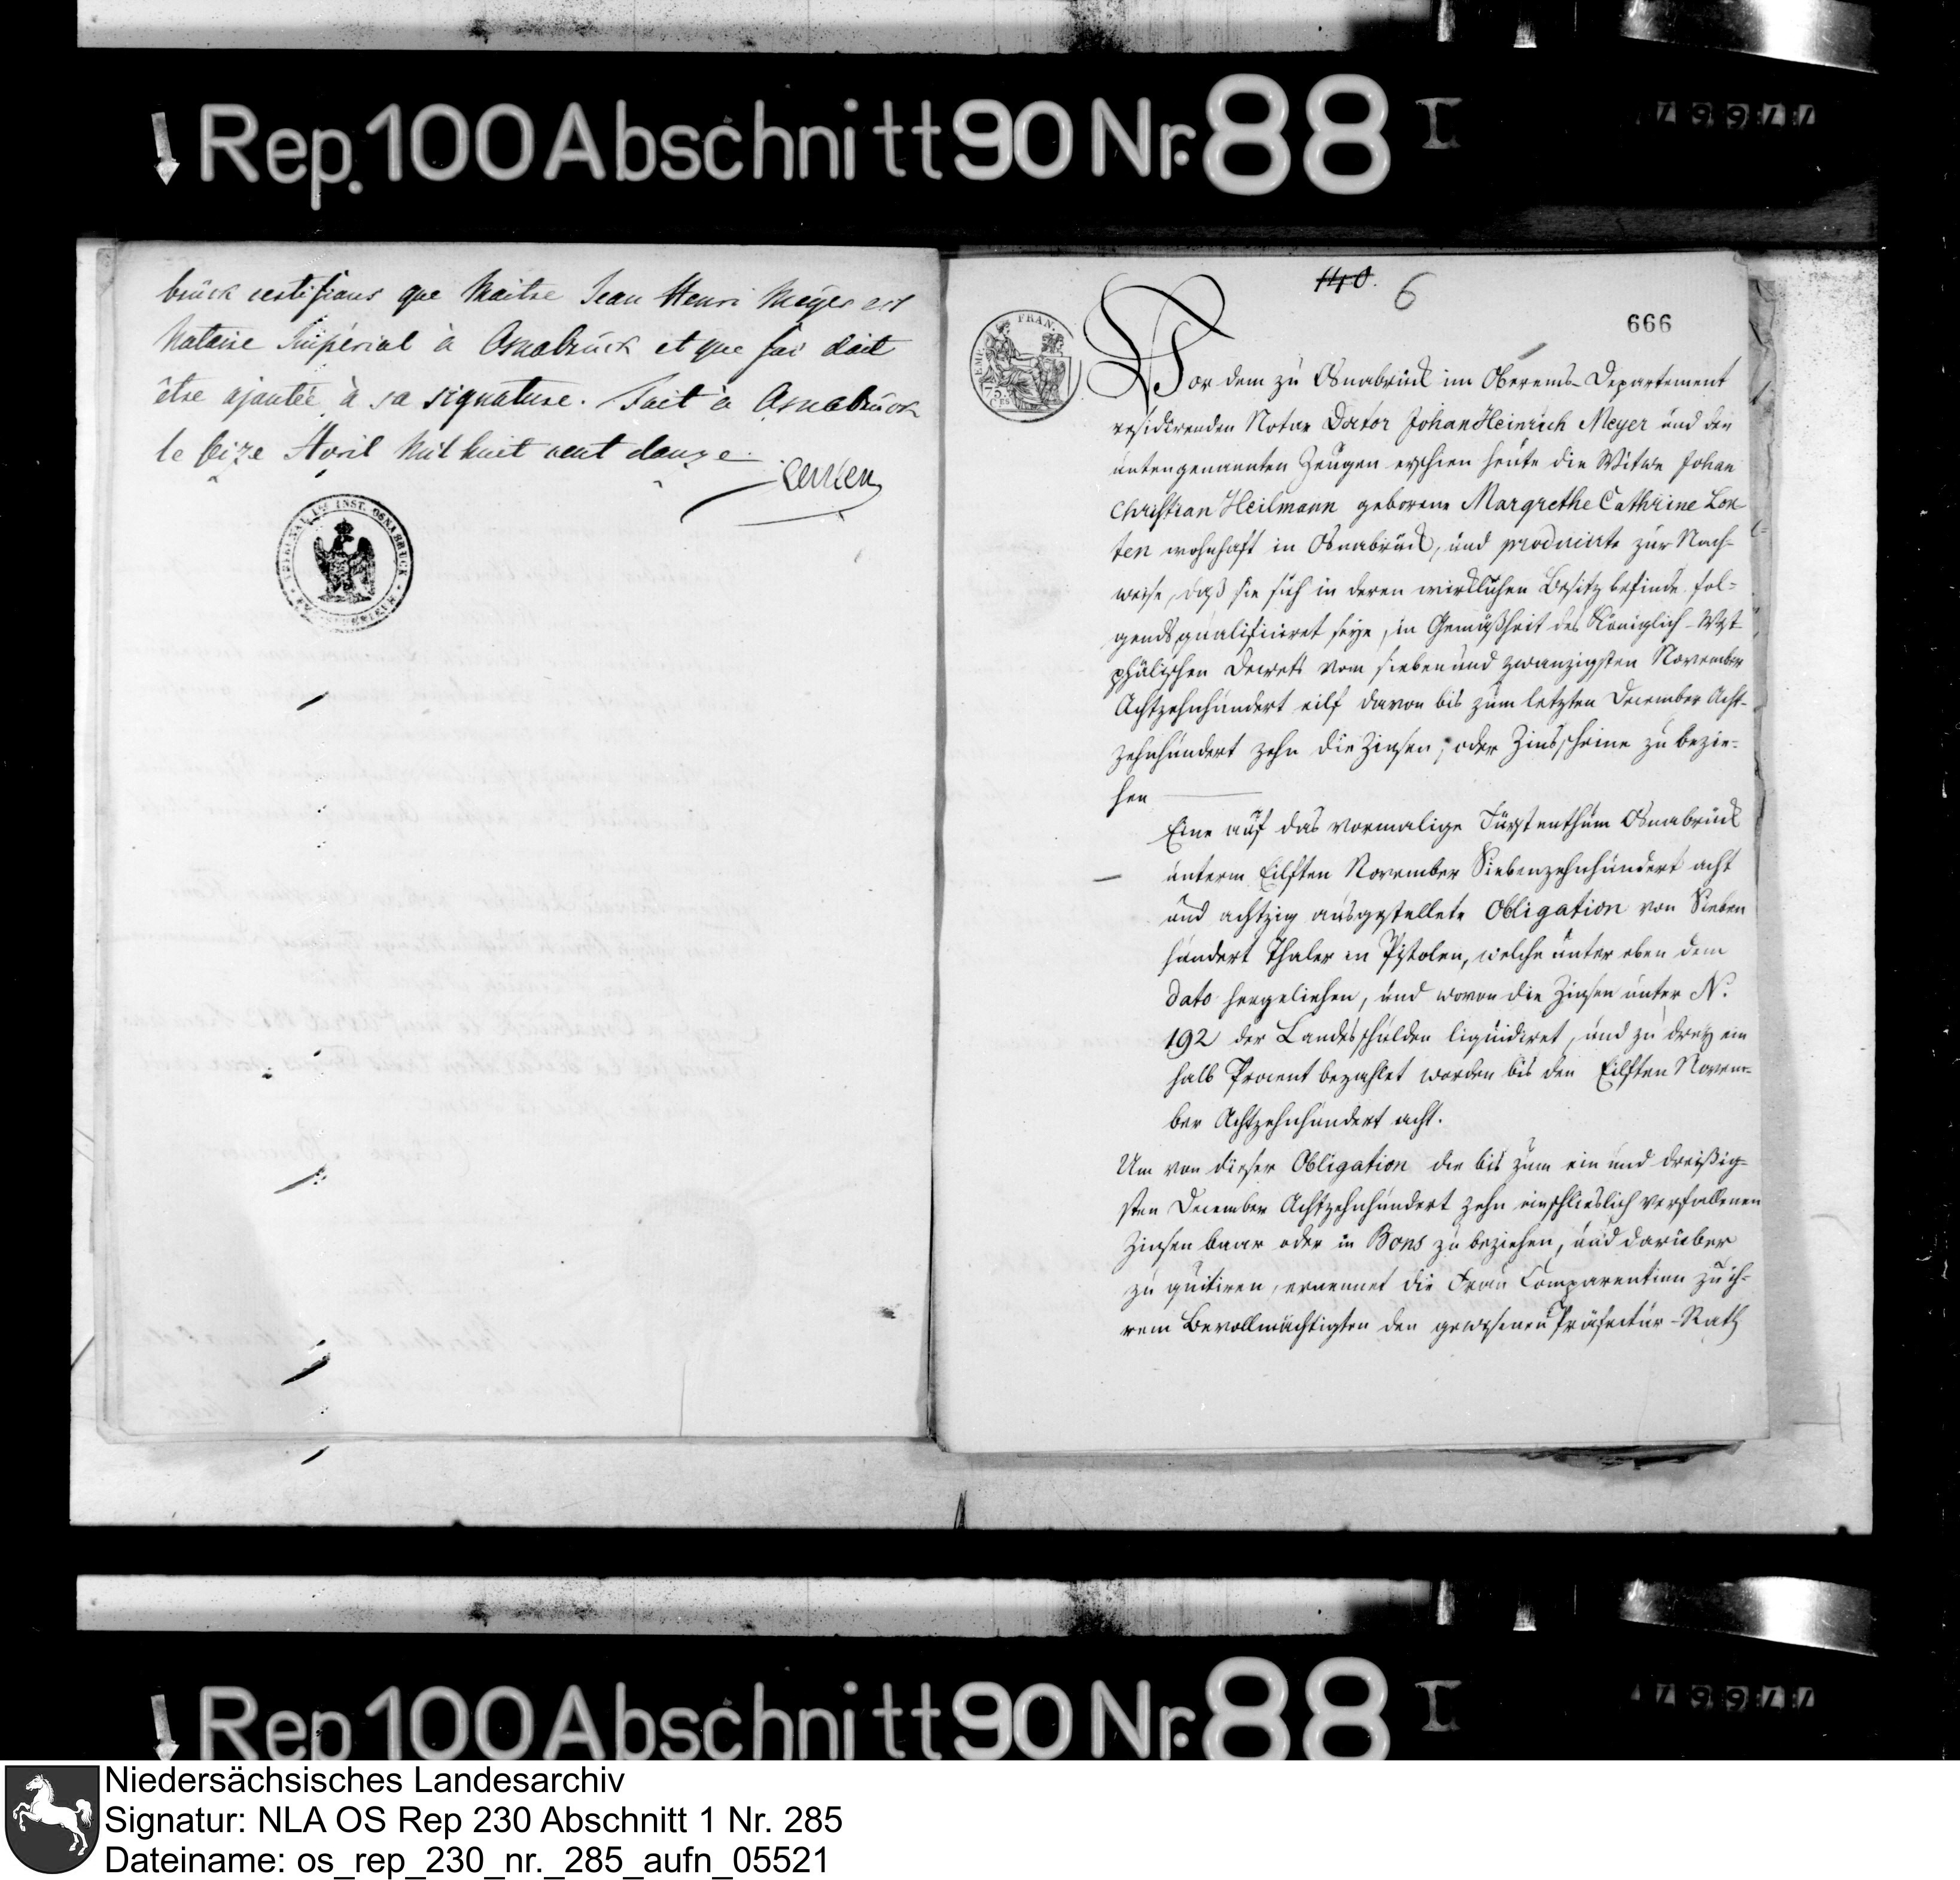 Rep. 100 Abschnitt 90 Nr. 88 I
brück certifions que Maitre Jean Henri Meyer est
Notaire Impérial à Osnabrück et que foi doit
être ajoutée à sa signature. Fait à Osnabrück
le seize Avril mil huit cent douze.
TRIBUNAL INST. OSNABRUCK
140.
6
666
EMP. FRAN.
75
Vor dem zu Osnabrück im Oberems-Departement
residirenden Notar Doctor Johan Heinrich Meyer und den
untengenannten Zeugen erschien heute die Witwe Johan
Christian Heilmann geborene Margrethe Cathrine Lon-
ten wohnhaft in Osnabrück, und producirte zur Nach-
weise, daß sie sich in deren wirklichen Besitz befinde fol-
gends qualificiret seye, in Gemäßheit des Königlich-West-
phälischen Decrets vom sieben und zwanzigsten November
Achtzehnhundert eilf davon bis zum letzten December Acht-
zehnhundert zehn die Zinsen, oder Zinsscheine zu bezie-
hen
Eine auf das vormalige Fürstenthum Osnabrück
unterm Eilften November Siebenzehnhundert acht
und achtzig ausgestellete Obligation von Sieben
hundert Thaler in Pistolen, welche unter eben dem
dato hergeliehen, und wovon die Zinsen unter N.
192 der Landesschulden liquidiret, und zu drey ein
halb Procent bezahlet worden bis den Eilften Novem-
ber Achtzehnhundert acht.
Um von dieser Obligation die bis zum ein und dreißig-
sten December Achtzehnhundert zehn einschlieslich verfallenen
Zinsen baar oder in Bons zu beziehen, und darüber
zu quitiren, ernennet die Frau Comparentinn zu ih-
rem Bevollmächtigten den gewesenen Präfectur-Rath
Rep 100 Abschnitt 90 Nr. 88 I
Niedersächsisches Landesarchiv
Signatur: NLA OS Rep 230 Abschnitt 1 Nr. 285
Dateiname: os_rep_230_nr._285_aufn_05521